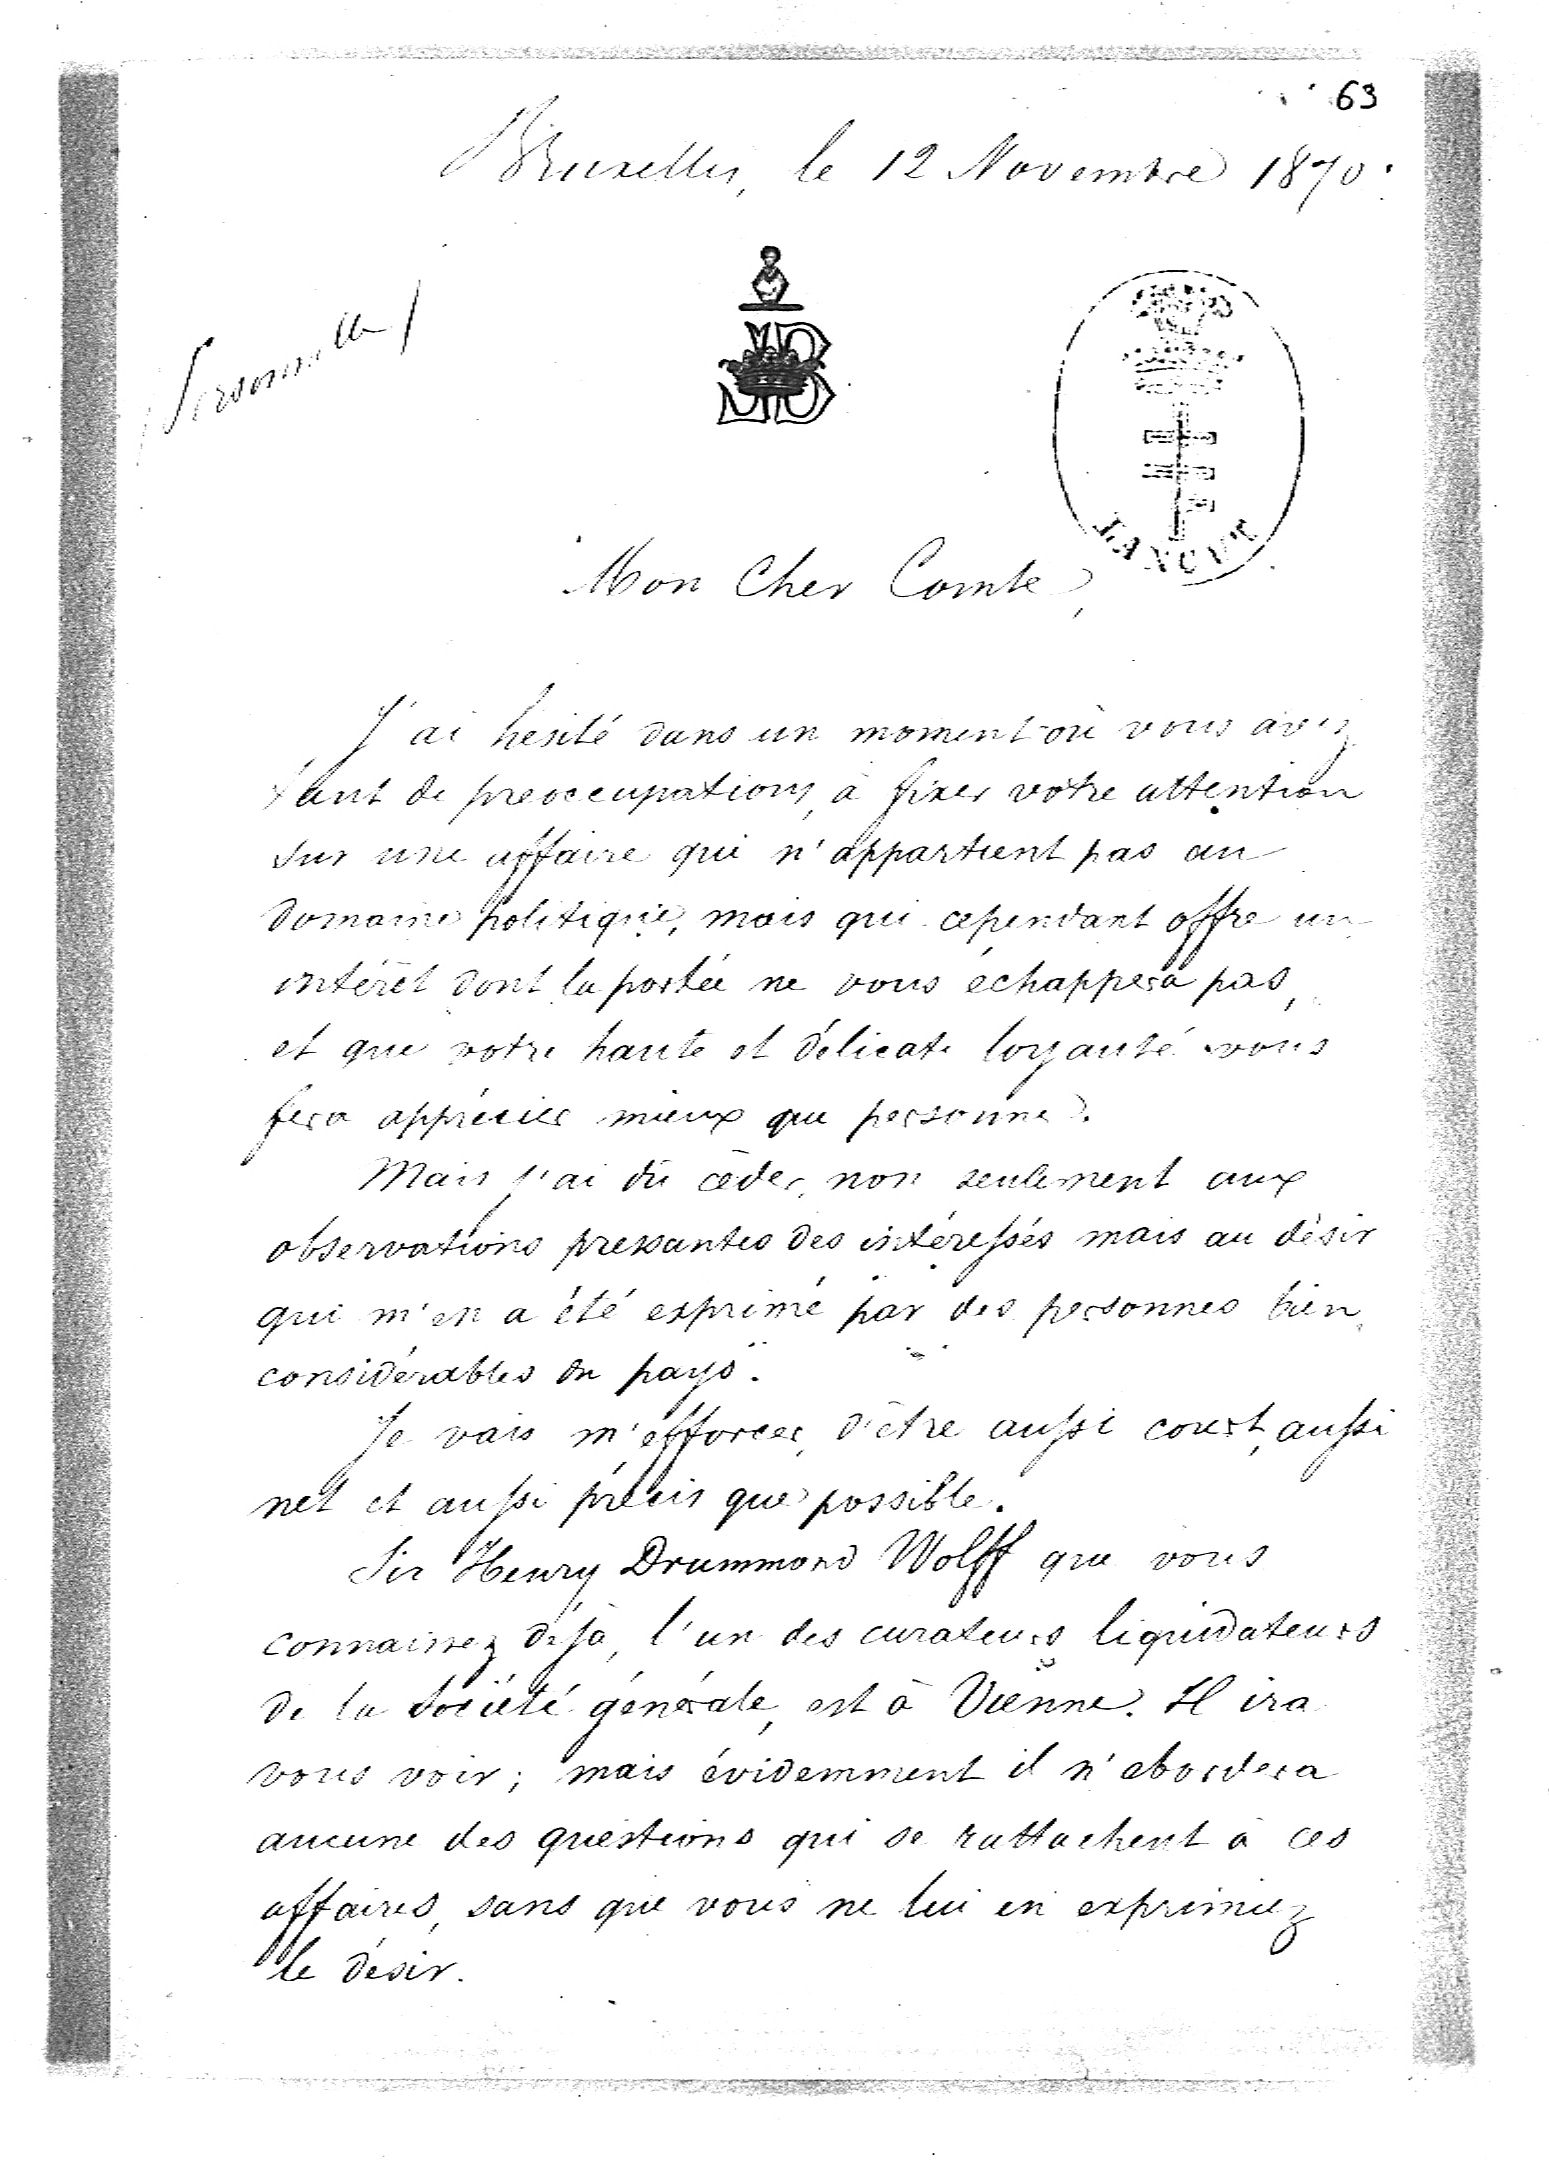 63
Bruxelles, le 12 Novembre 1870.
Personnelle/
MB
ŁAŃCUT
Mon Cher Comte,
J'ai hesité dans un moment où vous avez
tant de preoccupations, à fixer votre attention
sur une affaire qui n'appartient pas au
domaine politique, mais qui cependant offre un
intérêt dont la portée ne vous échappera pas,
et que votre haute et délicate loyauté vous
fera apprécier mieux que personne.
Mais j'ai dû céder, non seulement aux
observations pressantes des intéressés mais au désir
qui m'en a été exprimé par des personnes bien
considérables du pays.
Je vais m'efforcer, d'être aussi court, aussi
net et aussi précis que possible.
Sir Henry Drummond Wolff que vous
connaissez déjà, l'un des curateurs liquidateurs
de la Société générale, est à Vienne. Il ira
vous voir; mais évidemment il n'abordera
aucune des questions qui se rattachent à ces
affaires, sans que vous ne lui en exprimiez
le désir.